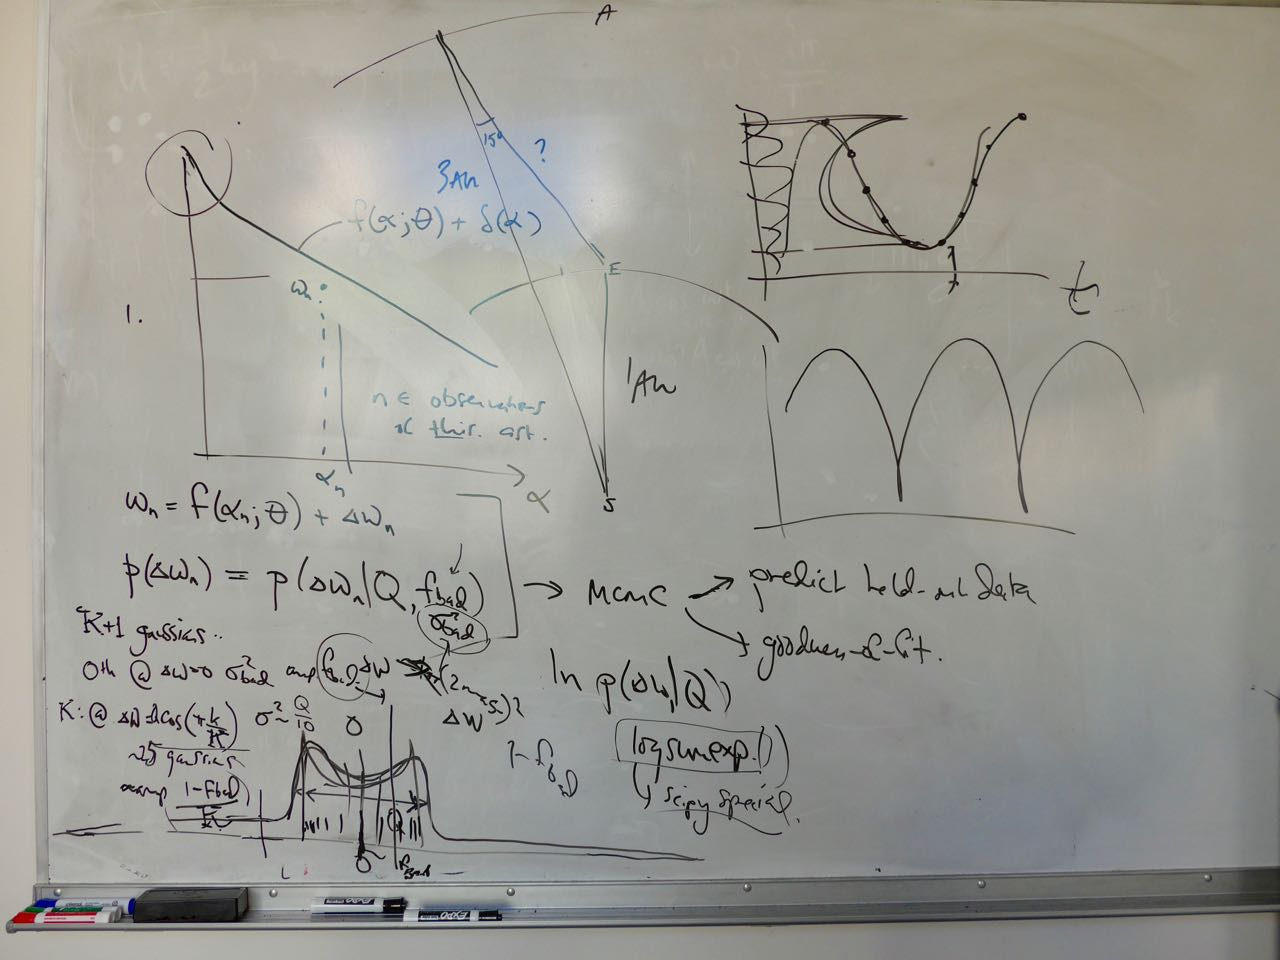 A
15°
?
3AU
f(α;θ) + δ(α)
E
ωₙ
1.
1AU
n ∈ observations
of this ast.
αₙ
α
S
t
ωₙ = f(αₙ;θ) + Δωₙ
p(Δωₙ) = p(Δωₙ|Q, fbad)
σ²bad
→ MCMC
predict held-out data
goodness-of-fit.
K+1 gaussians..
0th @ Δω=0 σ²bad amp fbad
ln p(Δω|Q)
K: @ cos(πk/K) σ² ~ Q/10
~25 gaussians
amp 1-fbad
K
0
1-fbad
logsumexp()
scipy special.
EXPO
EXPO